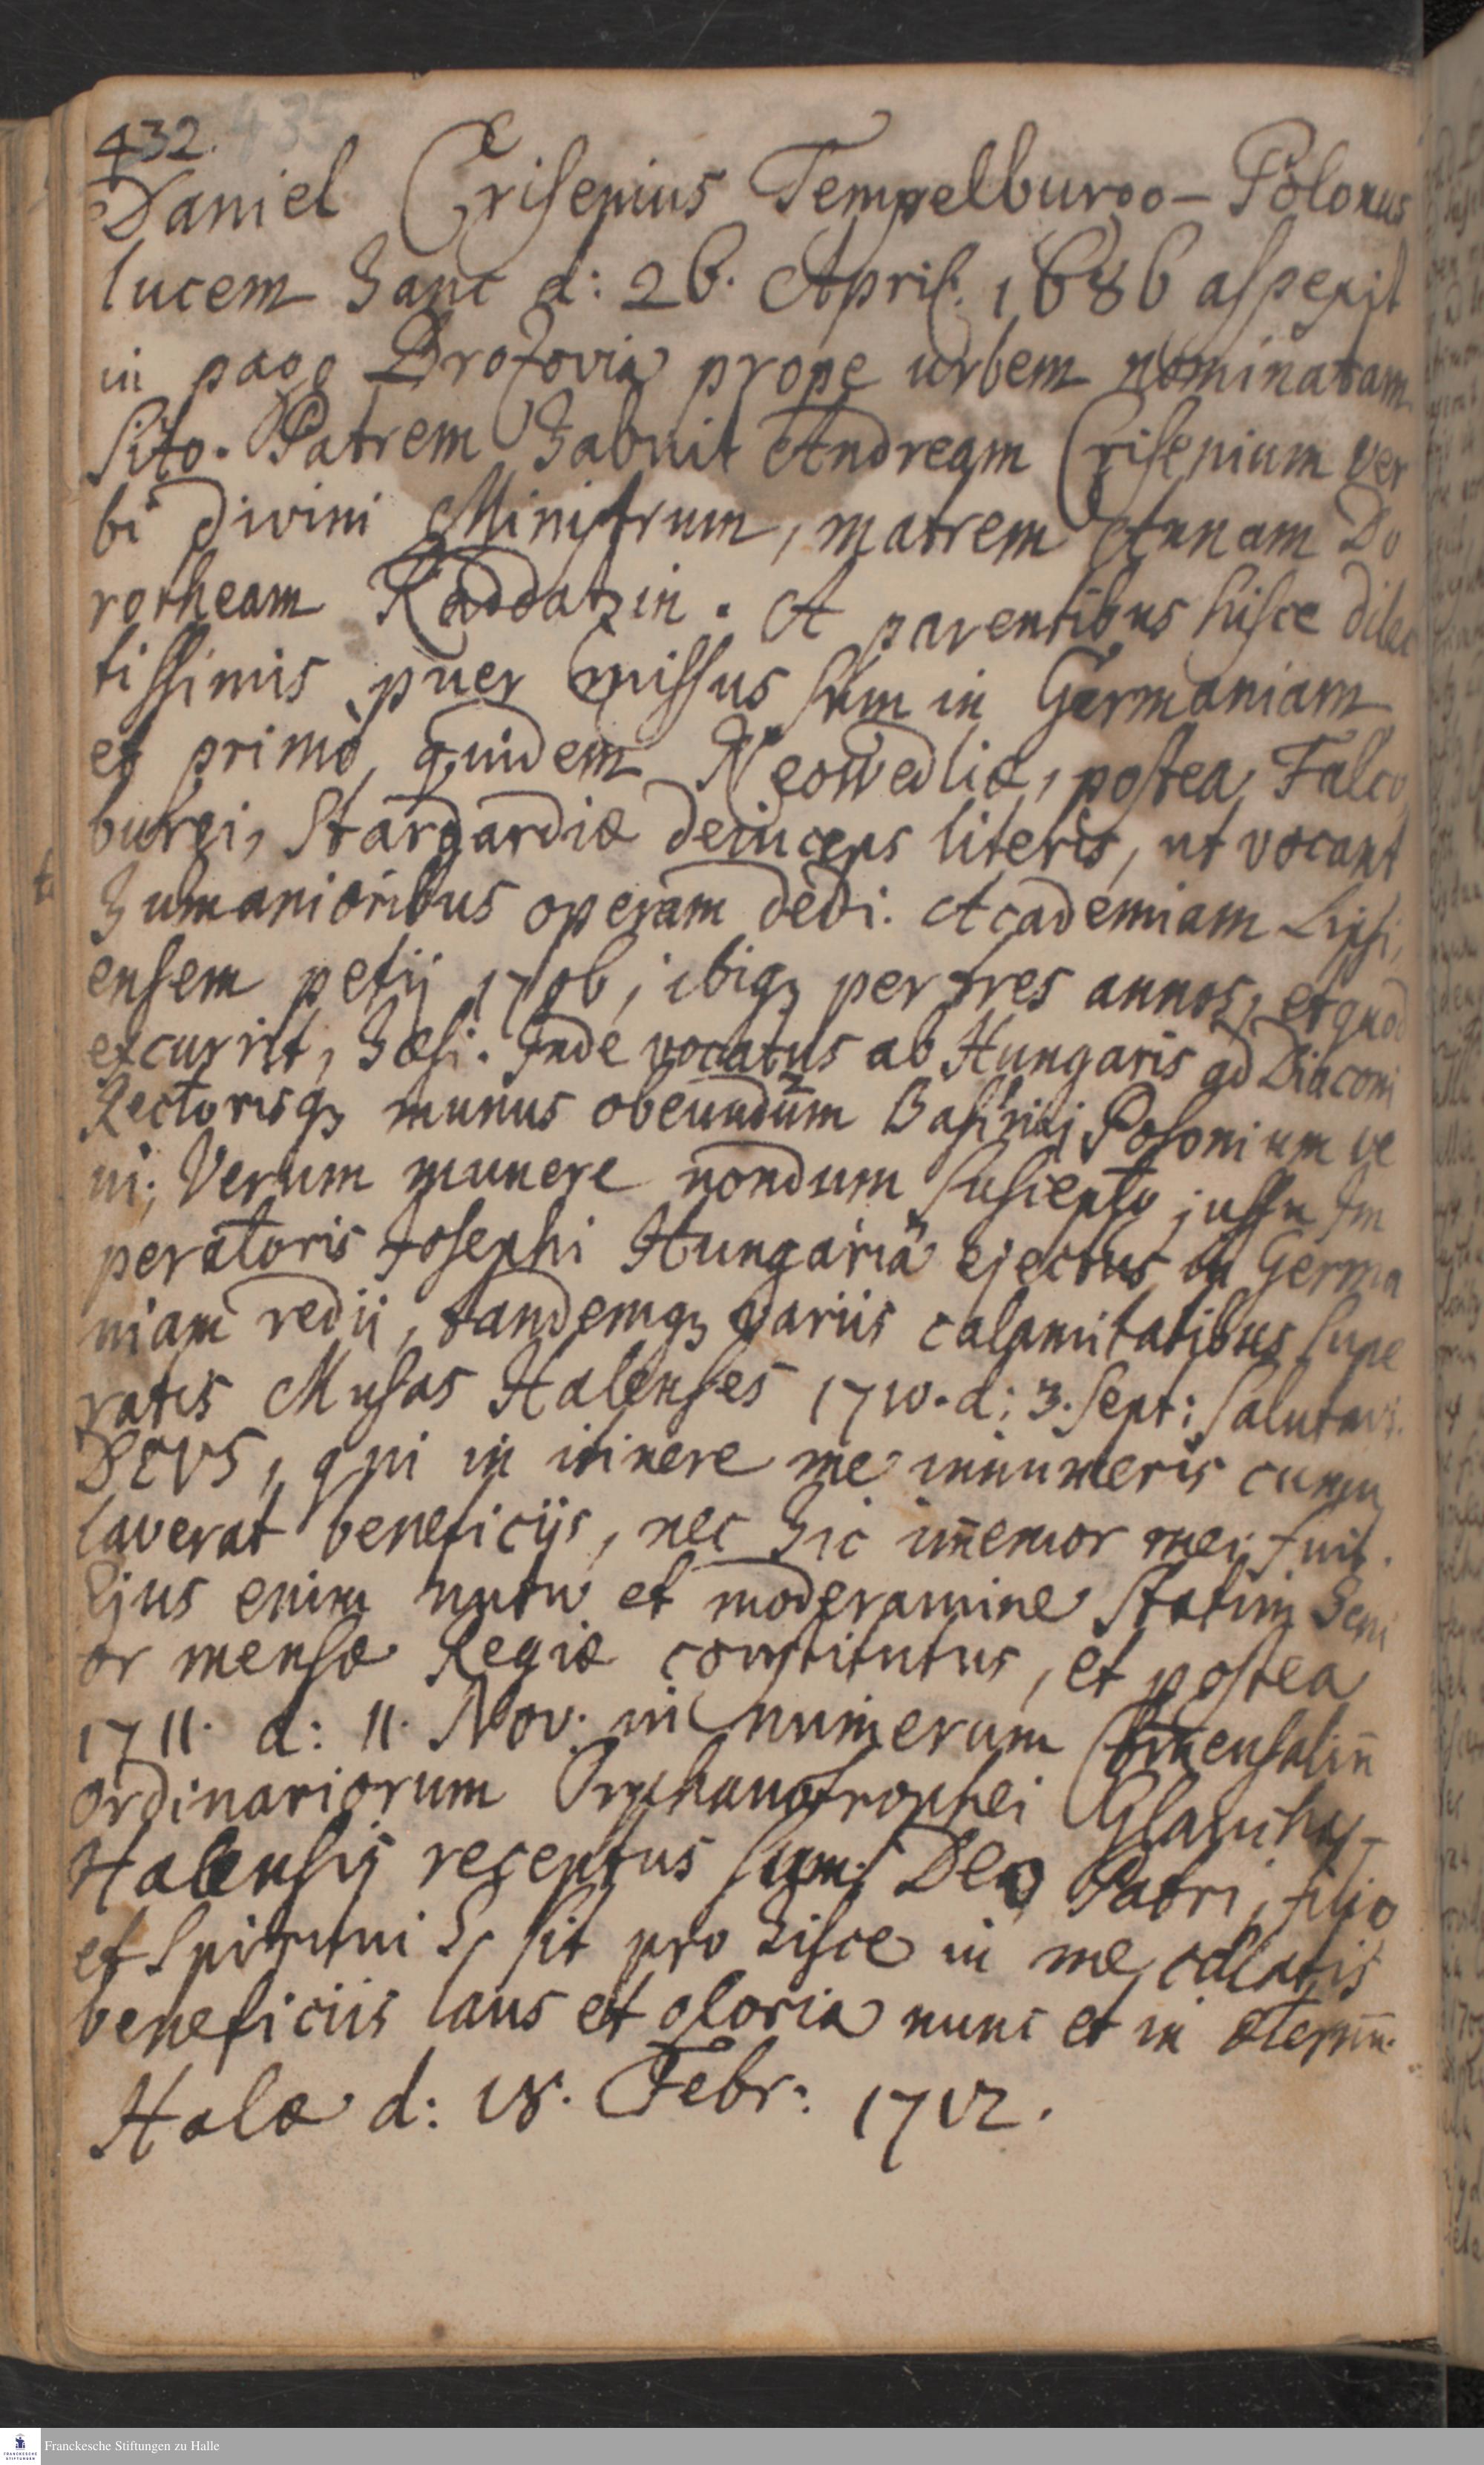 432. 435
Daniel Crisenius Tempelburgo-Polonus
lucem hanc d: 26. April. 1686 aspexit
in pago Brotzovia prope urbem nominatam
sito. Patrem habuit Andream Crisenium Ver
bi divini Ministrum, matrem Annam Do
rotheam Raddatzin. A parentibus hisce dilec
tissimis puer missus sum in Germaniam
et primò quidem Neowedliæ, postea Falco
burgi, Stargardiæ deinceps literis, ut vocant
humanioribus operam dedi. Academiam Lipsi,
ensem petij 1706, ibiq; per tres annos, et quod
excurrit, hæsi. Inde vocatus ab Hungaris ad Diaconi
Rectorisq; munus obeundum Posonium ve
ni; Verum munere nondum suscepto jussu Im
peratoris Josephi Hungariâ ejectus in Germa
niam redii, tandemq; variis calamitatibus supe
ratis Musas Halenses 1710. d: 3. Sept: salutavi.
DEVS, qui in itinere me innumeris cumu
laverat beneficijs, nec hic im̅emor mei fuit.
Ejus enim nutu et moderamine statim Seni
or mensæ Regiæ constitutus, et postea
1711. d: 11. Nov. in numerum Com̅ensaliū
ordinariorum Orphanotrophei Glaucha-
Halensis receptus sum. Deo Patri, filio
et Spiritui S. sit pro hisce in me collatis
beneficiis laus et gloria nunc et in æternū.
Halæ d: 18. Febr: 1712.
Franckesche Stiftungen zu Halle